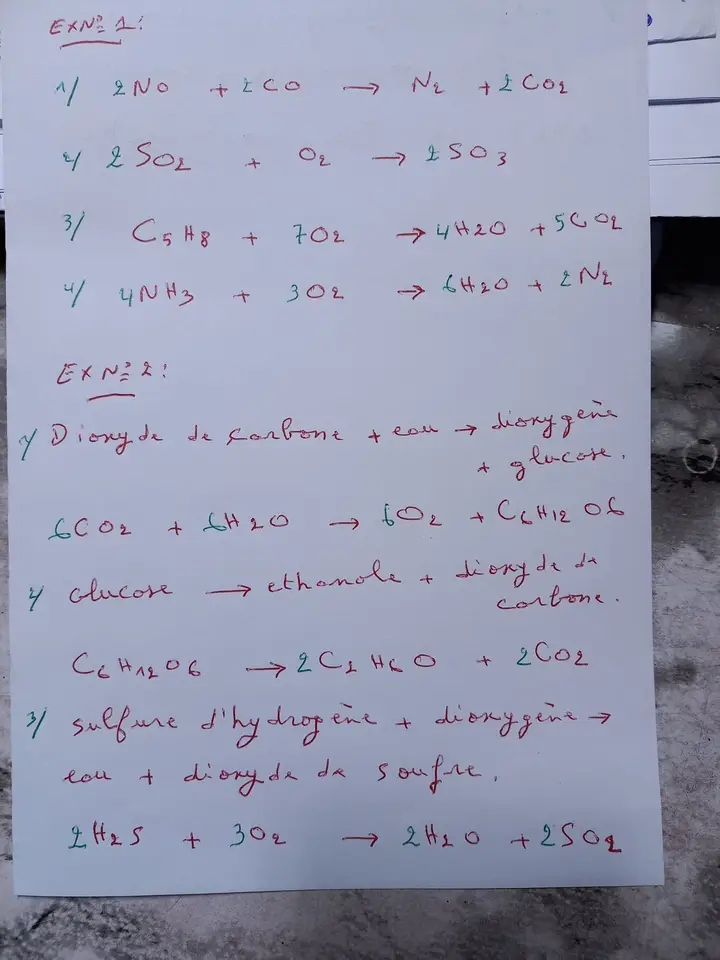 EXN° 1:
1/ 2NO + 2CO → N2 + 2CO2
2/ 2SO2 + O2 → 2SO3
3/ C5H8 + 7O2 → 4H2O + 5CO2
4/ 4NH3 + 3O2 → 6H2O + 2N2
EXN° 2:
1/ Dioxyde de carbone + eau → dioxygène
+ glucose.
6CO2 + 6H2O → 6O2 + C6H12O6
2/ Glucose → ethanole + dioxyde de
carbone.
C6H12O6 → 2C2H6O + 2CO2
3/ sulfure d'hydrogène + dioxygène →
eau + dioxyde de soufre.
2H2S + 3O2 → 2H2O + 2SO2